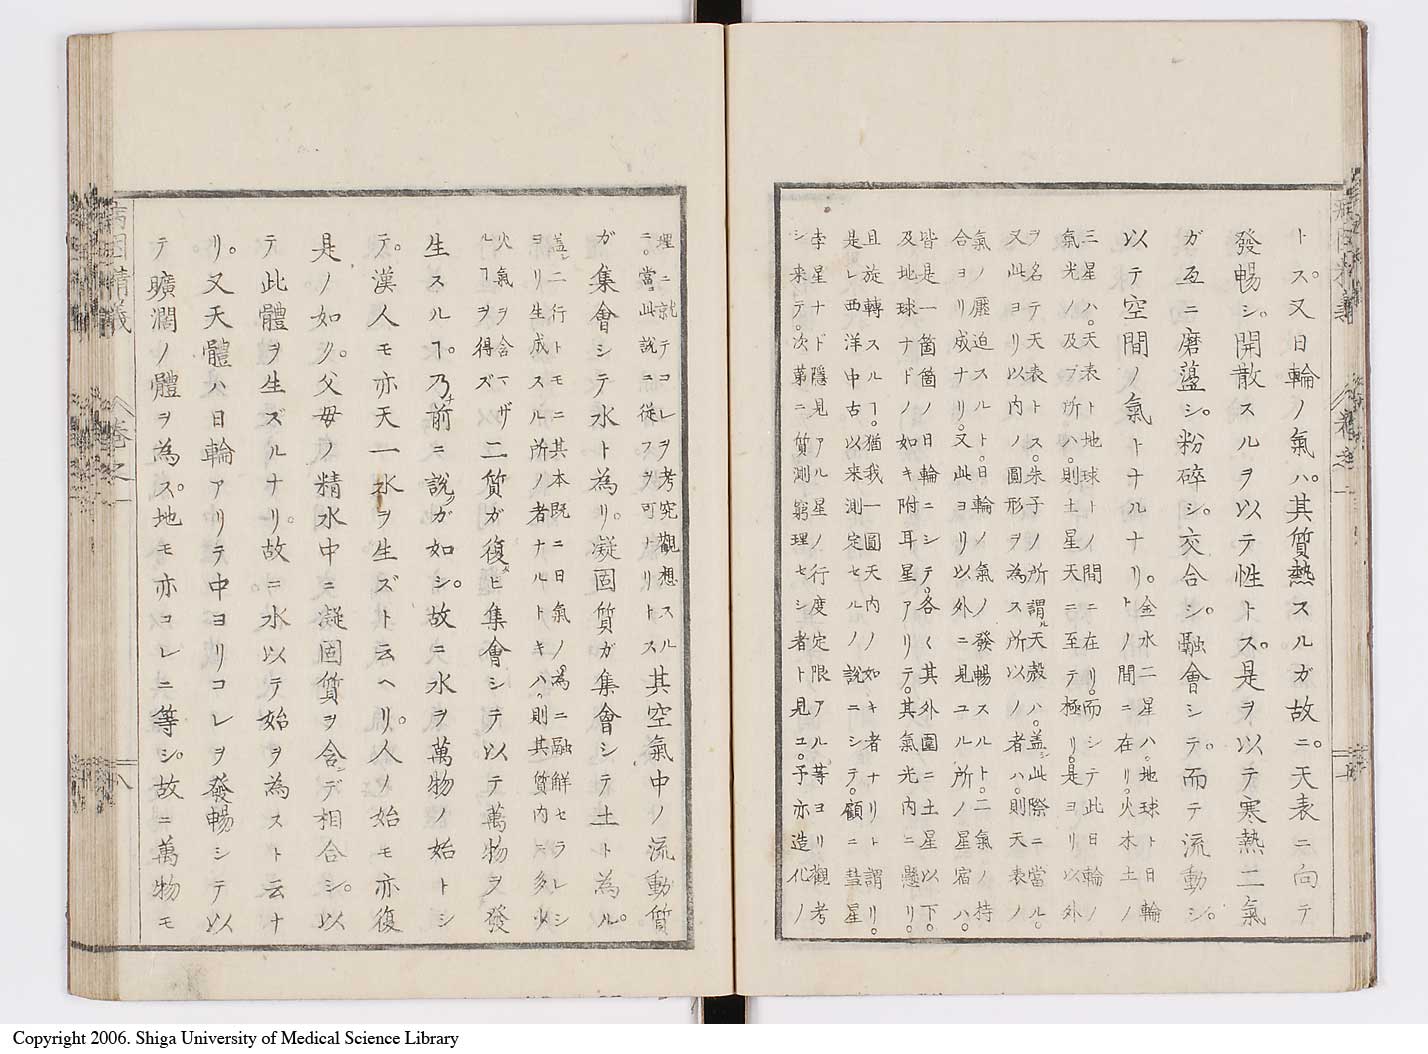 トス。又日輪ノ氣ハ。其質熱スルガ故ニ。天表ニ向テ
發暢シ。開散スルヲ以テ性トス。是ヲ以テ寒熱二氣
ガ互ニ磨盪シ。粉碎シ。交合シ。融會シテ。而テ流動シ。
以テ空間ノ氣トナルナリ。
金水二星ハ。地球ト日輪
トノ間ニ在リ。火木土ノ
三星ハ。天表ト地球トノ間ニ在リ。而シテ此日輪ノ
氣光ノ及ブ所ハ。則土星天ニ至テ極リ。是ヨリ以外
ヲ名テ天表トス。朱子ノ所謂ル天殼ハ。盖シ此際ニ當ル。
又此ヨリ以内ノ圓形ヲ為ス所以ノ者ハ。則天表ノ
氣ノ壓迫スルト。日輪ノ氣ノ發暢スルト。二氣ノ持
合ヨリ成ナリ。又此ヨリ以外ニ見ユル所ノ星宿ハ。
皆是一箇箇ノ日輪ニシテ。各〱其外圍ニ土星以下。
及地球ナドノ如キ附耳星アリテ。其氣光内ニ懸リ。
且旋轉スルヿ。猶我一圓天内ノ如キ者ナリト謂リ。
是レ西洋中古以来測定セルノ說ニシテ。顧ニ彗星
孛星ナド隱見アル星ノ行度定限アル等ヨリ觀考
シ来テ。次第ニ質測窮理セシ者ト見ユ。予亦造化ノ
理ニ就テコレヲ考究觀想スル
ニ。當ニ此說ニ從フヲ可ナリトス
其空氣中ノ流動質
ガ集會シテ水ト為リ。凝固質ガ集會シテ土ト為ル。
盖シ二行トモニ其本既ニ日氣ノ為ニ融解セラレシ
ヨリ生成スル所ノ者ナルトキハ。則其質内ニ多少
火氣ヲ含マザ
ルヿヲ得ズ
二質ガ復タヒ集會シテ以テ萬物ヲ發
生スルヿ。乃チ前ニ說クガ如シ。故ニ水ヲ萬物ノ始トシ
テ。漢人モ亦天一水ヲ生ズト云ヘリ。人ノ始モ亦復
是ノ如リ。父母ノ精水中ニ凝固質ヲ含ンデ相合シ。以
テ此體ヲ生ズルナリ。故ニ水以テ始ヲ為スト云ナ
リ。又天體ハ日輪アリテ中ヨリコレヲ發暢シテ以
テ曠濶ノ體ヲ為ス。地モ亦コレニ等シ。故ニ萬物モ
病因精義
巻之一
八